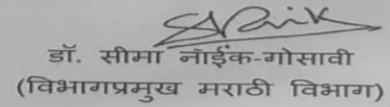 डॉ. सीमा नाईक-गोसावी
(विभागप्रमुख मराठी विभाग)